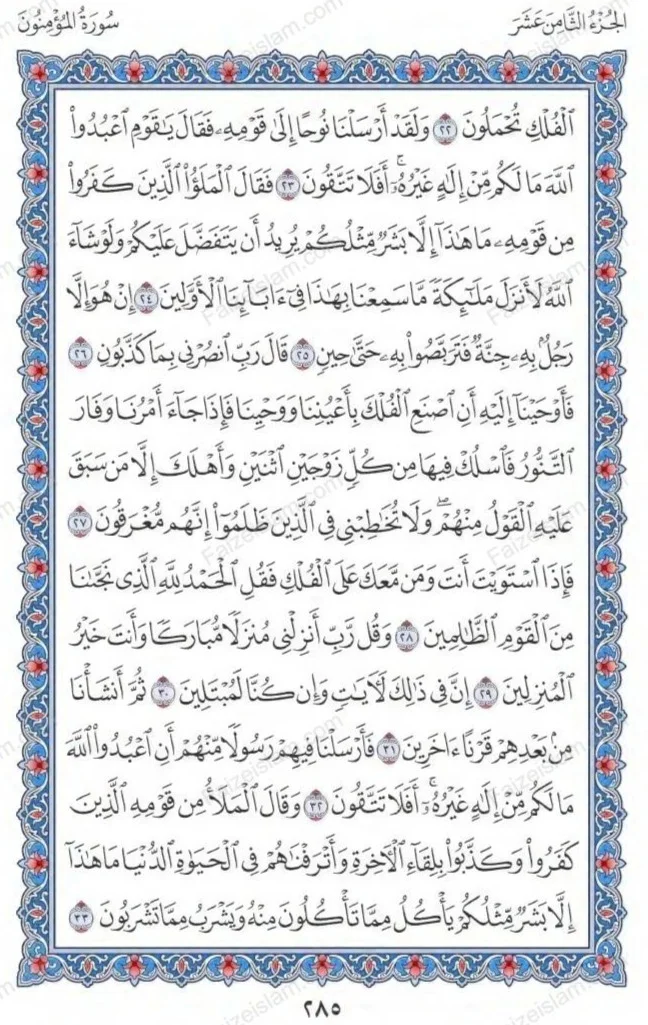 الجُزْءُ الثَّامِنَ عَشَرَ
سُورَةُ المُؤْمِنُونَ
ٱلْفُلْكِ تُحْمَلُونَ ٢٢ وَلَقَدْ أَرْسَلْنَا نُوحًا إِلَىٰ قَوْمِهِۦ فَقَالَ يَـٰقَوْمِ ٱعْبُدُوا۟
ٱللَّهَ مَا لَكُم مِّنْ إِلَـٰهٍ غَيْرُهُۥٓ ۚ أَفَلَا تَتَّقُونَ ٢٣ فَقَالَ ٱلْمَلَؤُا۟ ٱلَّذِينَ كَفَرُوا۟
مِن قَوْمِهِۦ مَا هَـٰذَآ إِلَّا بَشَرٌ مِّثْلُكُمْ يُرِيدُ أَن يَتَفَضَّلَ عَلَيْكُمْ وَلَوْ شَآءَ
ٱللَّهُ لَأَنزَلَ مَلَـٰٓئِكَةً مَّا سَمِعْنَا بِهَـٰذَا فِىٓ ءَابَآئِنَا ٱلْأَوَّلِينَ ٢٤ إِنْ هُوَ إِلَّا
رَجُلٌۢ بِهِۦ جِنَّةٌ فَتَرَبَّصُوا۟ بِهِۦ حَتَّىٰ حِينٍ ٢٥ قَالَ رَبِّ ٱنصُرْنِى بِمَا كَذَّبُونِ ٢٦
فَأَوْحَيْنَآ إِلَيْهِ أَنِ ٱصْنَعِ ٱلْفُلْكَ بِأَعْيُنِنَا وَوَحْيِنَا فَإِذَا جَآءَ أَمْرُنَا وَفَارَ
ٱلتَّنُّورُ فَٱسْلُكْ فِيهَا مِن كُلٍّ زَوْجَيْنِ ٱثْنَيْنِ وَأَهْلَكَ إِلَّا مَن سَبَقَ
عَلَيْهِ ٱلْقَوْلُ مِنْهُمْ ۖ وَلَا تُخَـٰطِبْنِى فِى ٱلَّذِينَ ظَلَمُوٓا۟ إِنَّهُم مُّغْرَقُونَ ٢٧
فَإِذَا ٱسْتَوَيْتَ أَنتَ وَمَن مَّعَكَ عَلَى ٱلْفُلْكِ فَقُلِ ٱلْحَمْدُ لِلَّهِ ٱلَّذِى نَجَّىٰنَا
مِنَ ٱلْقَوْمِ ٱلظَّـٰلِمِينَ ٢٨ وَقُل رَّبِّ أَنزِلْنِى مُنزَلًا مُّبَارَكًا وَأَنتَ خَيْرُ
ٱلْمُنزِلِينَ ٢٩ إِنَّ فِى ذَٰلِكَ لَـَٔايَـٰتٍ وَإِن كُنَّا لَمُبْتَلِينَ ٣٠ ثُمَّ أَنشَأْنَا
مِنۢ بَعْدِهِمْ قَرْنًا ءَاخَرِينَ ٣١ فَأَرْسَلْنَا فِيهِمْ رَسُولًا مِّنْهُمْ أَنِ ٱعْبُدُوا۟ ٱللَّهَ
مَا لَكُم مِّنْ إِلَـٰهٍ غَيْرُهُۥٓ ۚ أَفَلَا تَتَّقُونَ ٣٢ وَقَالَ ٱلْمَلَأُ مِن قَوْمِهِ ٱلَّذِينَ
كَفَرُوا۟ وَكَذَّبُوا۟ بِلِقَآءِ ٱلْـَٔاخِرَةِ وَأَتْرَفْنَـٰهُمْ فِى ٱلْحَيَوٰةِ ٱلدُّنْيَا مَا هَـٰذَآ
إِلَّا بَشَرٌ مِّثْلُكُمْ يَأْكُلُ مِمَّا تَأْكُلُونَ مِنْهُ وَيَشْرَبُ مِمَّا تَشْرَبُونَ ٣٣
٢٨٥
Faizeislam.com